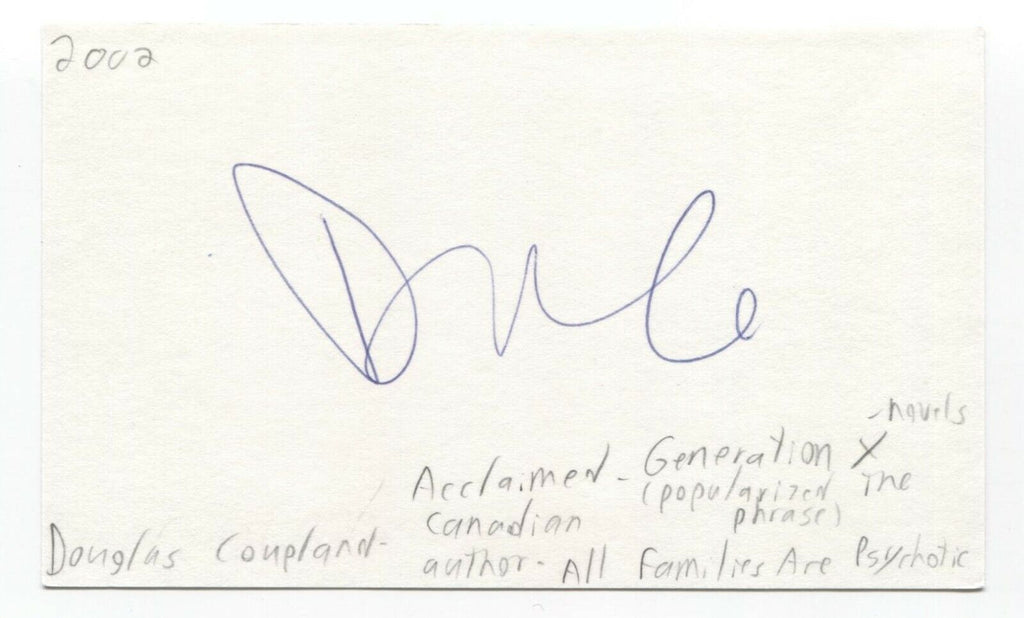 2002
-novels
Acclaimed - Generation X
(popularized The
Canadian phrase)
Douglas Coupland- author- All Families Are Psychotic